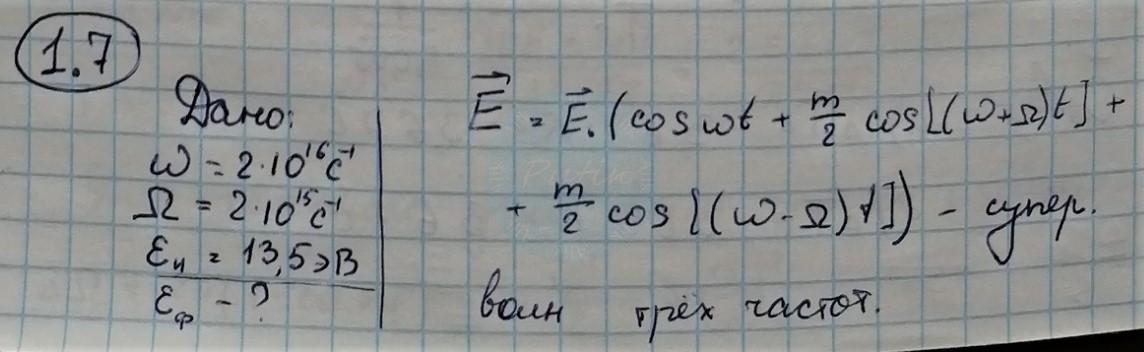 1.7
Дано:
ω = 2·10¹⁶ c⁻¹
Ω = 2·10¹⁵ c⁻¹
εи = 13,5 эВ
εф - ?
E⃗ = E⃗₀ (cos ωt + m/2 cos[(ω+Ω)t] +
+ m/2 cos[(ω-Ω)t]) - супер.
волн трёх частот.